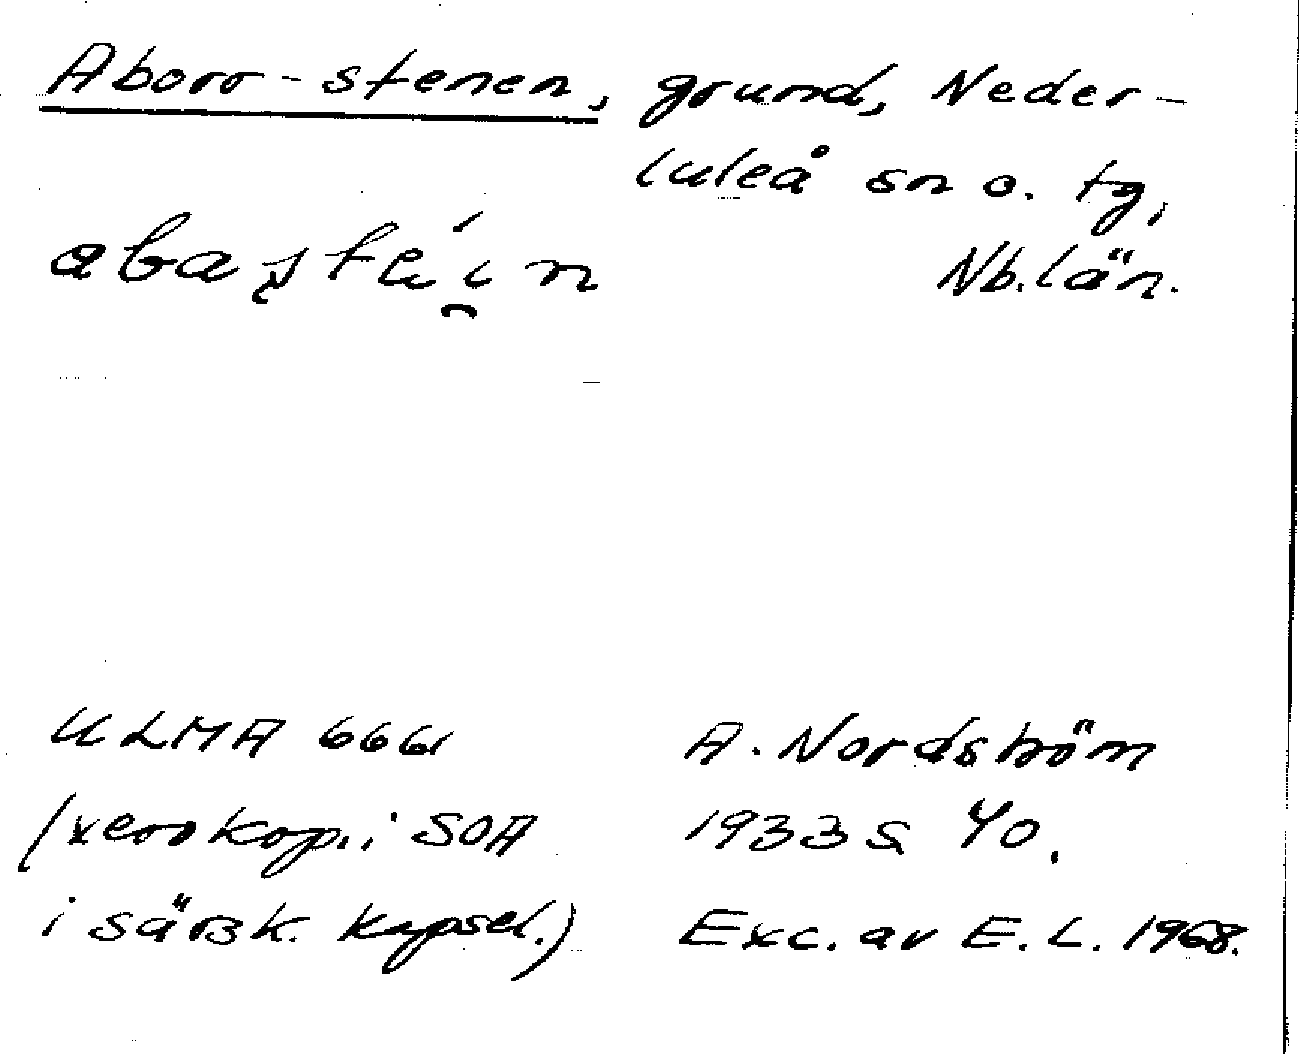 Aborr-stenen, grund, Neder-
luleå sn o. tg,
Nb. län.
ULMA 6661
(xerokop. i SOA
i särsk. kapsel.)
A. Nordström
1933 s 40.
Exc. av E. L. 1968.